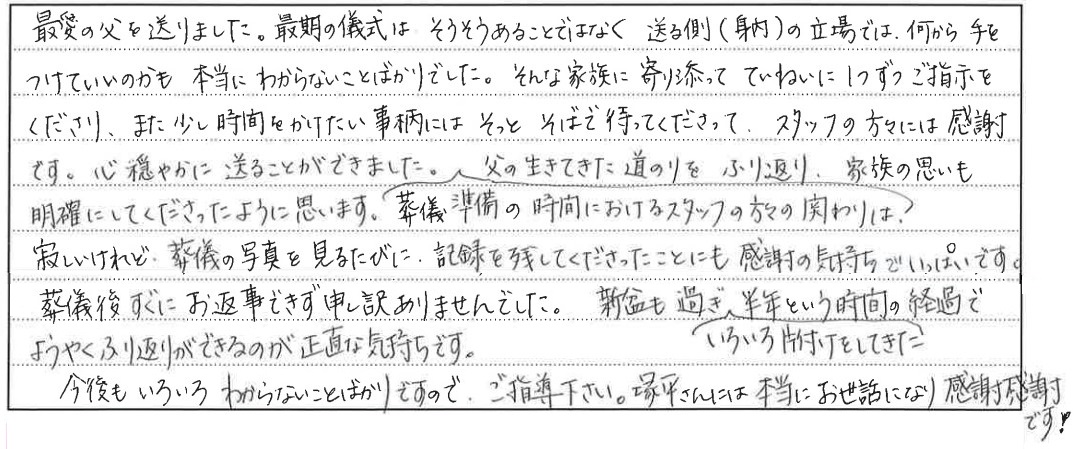 最愛の父を送りました。最期の儀式は そうそうあることではなく 送る側(身内)の立場では、何から手を
つけていいのかも 本当に わからないことばかりでした。そんな家族に寄り添って ていねいに1つずつご指示を
くださり、また少し時間をかけたい事柄には そっと そばで待ってくださって、スタッフの方々には感謝
です。心穏やかに送ることができました。父の生きてきた道のりを ふり返り、家族の思いも
明確にしてくださったように思います。葬儀準備の時間におけるスタッフの方々の関わりは、
寂しいけれど、葬儀の写真を見るたびに、記録を残してくださったことにも感謝の気持ちでいっぱいです。
葬儀後すぐにお返事できず申し訳ありませんでした。 新盆も過ぎ、半年という時間の経過で
ようやくふり返りができるのが正直な気持ちです。 いろいろ片付けをしてきた
今後もいろいろ わからないことばかりですので、ご指導下さい。塚平さんには本当にお世話になり感謝感謝
です!